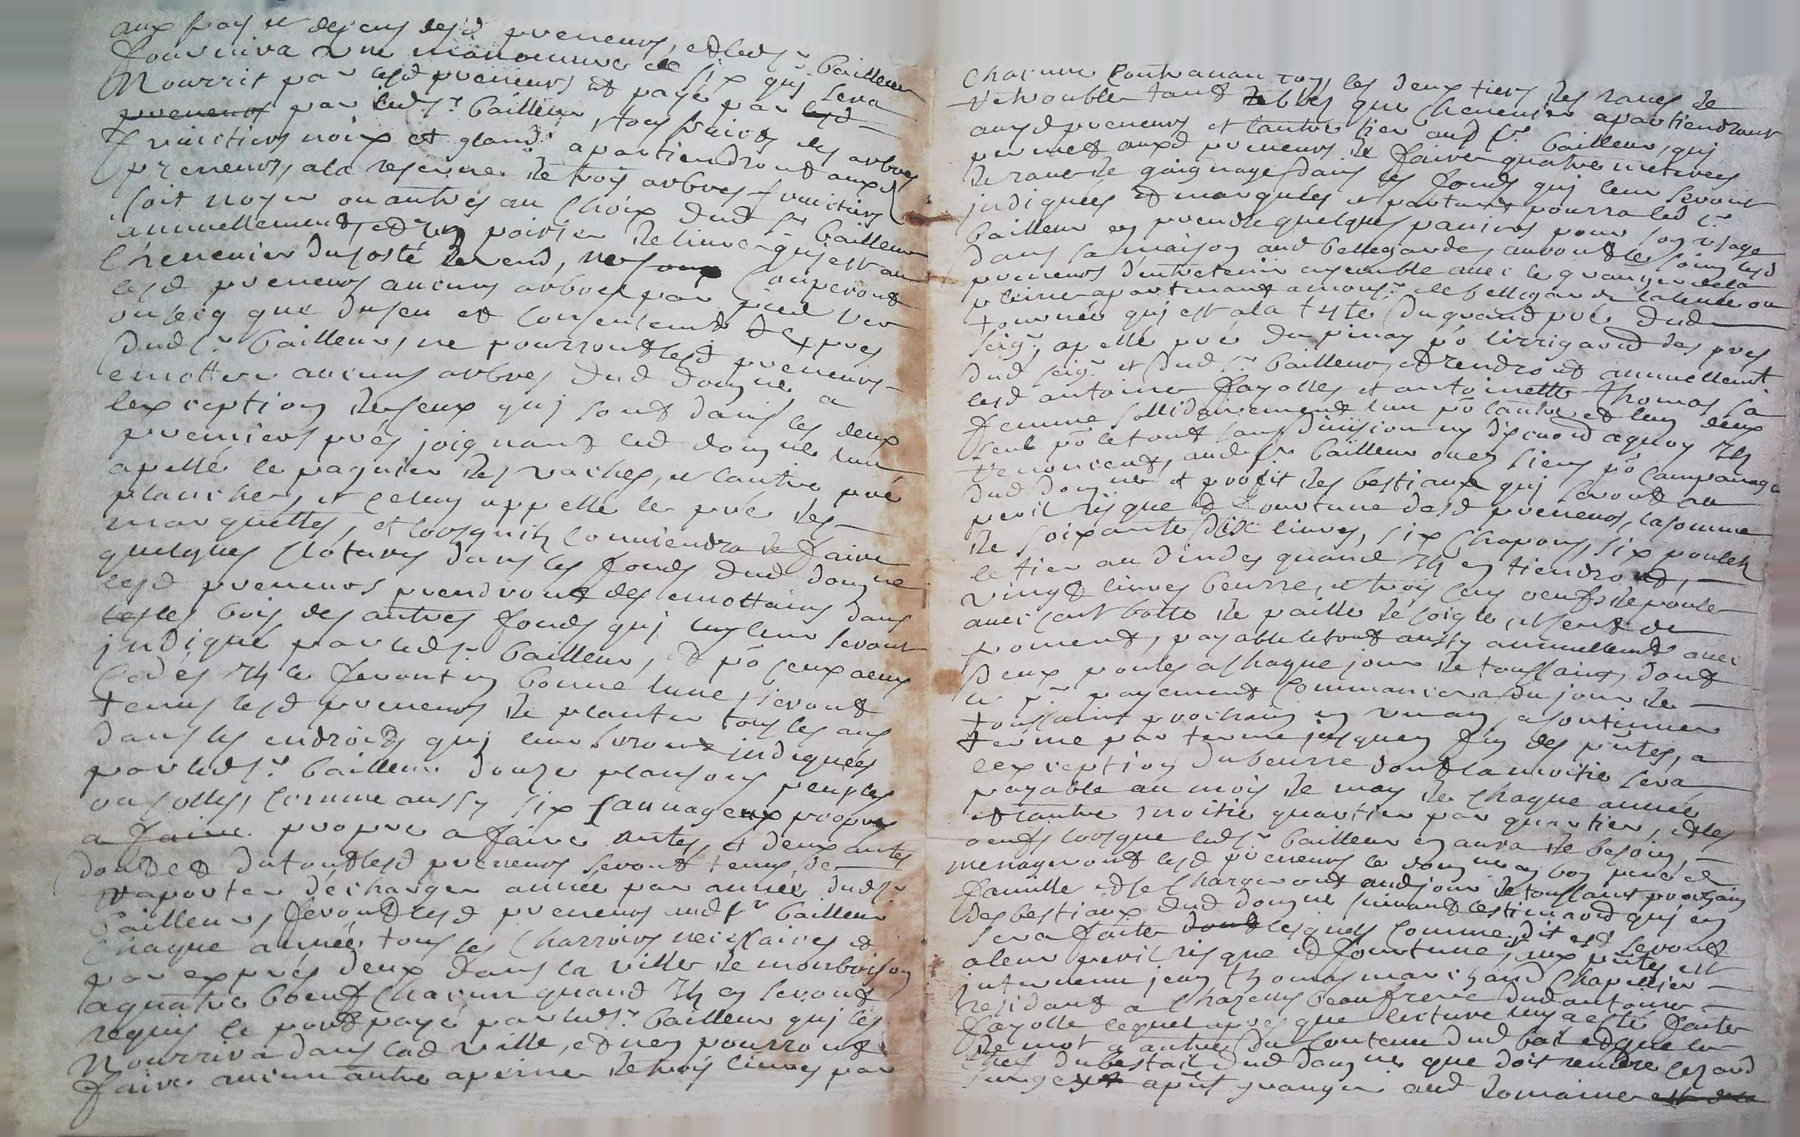 aux frais et depens desd preneurs, et leds.r bailleur
fournira une manoeuvre de six qui sera
Nourrit par lesd preneurs et payé par lesd
preneurs par leds.r bailleur, tous fruicts des arbres
fruictiers noix et glands apartiendront auxd
preneurs, ala reserve de trois arbres fruictiers
soit noyer ou autres au choix dud s.r bailleur
annuellement, et d'un poirier de livre qui est au
chenevier du costé de vend, ne couperont
lesd preneurs aucuns arbres par pied ver
ou secq que du seu et consentement expres
dud s.r bailleur, ne pourront lesd preneurs
emotter aucuns arbres dud domaine a
lexception de ceux qui sont dans les deux
premiers prés joignant led domne lun
apellé le paquier des vaches, et lautre pré
plancher, et celuy appellé le pré des
marquettes, et lorsquil conviendra de faire
quelques clotures dans les fonds dud domne
lesd preneurs prendront des emottains dans
les bois des autres fonds qui leur seront
indiqué par leds.r bailleur, et po.r ceux
Ils le feront en bonne lune, seront
tenus lesd preneurs de planter tous les ans
dans les endroids qui leur seront indiquées
par leds.r bailleur douze plansons peuples
ou solles, comme aussy six sauvageux propre
a faire propre a faire antes, et deux antes
dont et du tout lesd preneurs seront tenus de
raporter décharger année par année dudsr
bailleur, feront lesd preneurs aud s.r bailleur
chaque année tous les charrois necessaires et
par exprés deux dans la ville de monbrison
a quatre boeufs chacun quand Ils en seront
requis le pont payé par leds.r bailleur qui les
Nourrira dans lad ville, et nen pourront
faire aucun autre a peine de trois livres par
chacune contravantion, les deux tiers des raves de
retrouble tant terres que chenevier apartiendront
auxd preneurs et lautre tier aud s.r bailleur, qui
permet auxd preneurs de faire quatre meterées
de rave de gaignage dans les fonds qui leur seront
indiquées et marquées et partant pourra led s.r
bailleur en prendre quelques paniers pour son usage
dans sa maison aud bellegarde, auront le soing lesd
preneurs dentretenir ensemble avec le granger de la
apartenant a mons.r de bellegarde la levée ou
tournée qui est a la teste du grand pré dud
seig.r, apellé pré du pinay po lirrigaon des prés
dud seig.r et dud s.r bailleur, et rendront annuellemt
lesd antoine fayolles et antoinette thomas sa
femme sollidairement lun po.r lautre et lun deux
seul po.r le tout sans division ny discution aquoy Ils
renoncent, aud s.r bailleur ou es siens po.r
dud domne et profit des bestiaux qui seront au
peril risque et fourtune desd preneurs, la somme
de soixante dix livres, six chapons, six poulets
le tier au dindes quand Ils en tiendront,
vingt livres beurre, et trois cens oeufs de poule
avec cent botte de paille de soigle, et cent de
froment, payable le tout aussy annuellement avec
deux poules a chaque jour de toussains, dont
le p.r payement commancera du jour de
toussaint prochain en un an, a continuer
terme par terme jusquen fin des pntes, a
lexception du beurre dont la moitié sera
payable au mois de may de chaque année
et lautre moitié quartier par quartier, et les
oeufs lorsque leds.r bailleur en aura de besoin,
menageront lesd preneurs le domne en bon pere de
famille et se chargeront aud jour de toussaint prochain
des bestiaux dud domne suivant lestimaon qui en
sera faite dont lesquels comme dit est seront
a leur peril risque et fourtune, aux pntes est
intervenu jean thomas marchand chapellier
residant a chazelles beaufrere dud antoine
fayolle lequel aprés que lecture luy a esté faite
de mot a autre du contenu dud bail et que le
chef du bestail dud domne que doit rendre
granger aud domaine